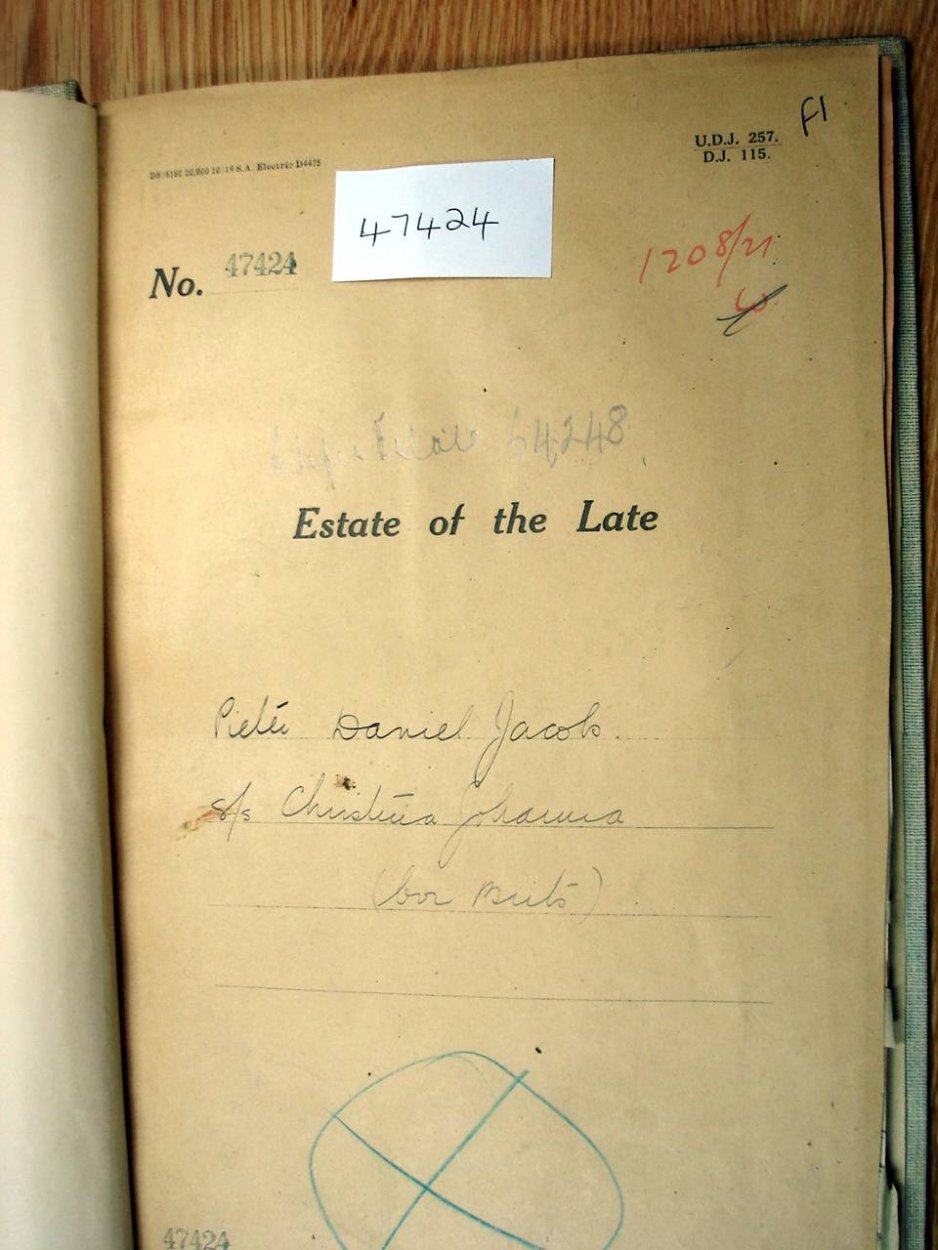 F1
U.D.J. 257.
D.J. 115.
20,000 10/19 S.A. Electric D4475
47424
No. 47424
1208/21
64248
Estate of the Late
Pieter Daniel Jacobs.
s/s Christina Johanna
(bor Brits)
47424